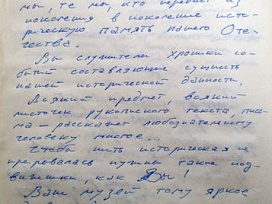 мы, те мы, кто передает из
поколения в поколение исто-
рическую память нашего Оте-
чества.
Вы слушатели хроники со-
бытий составляющие сущность
нашей исторической данности.
Всякий предмет, всякий
листочек рукописного текста, пись-
ма – расскажет любознательному
человеку многое...
Чтоб нить историческая не
прерывалась нужны такие под-
вижники, как Вы!
Ваш музей тому яркое